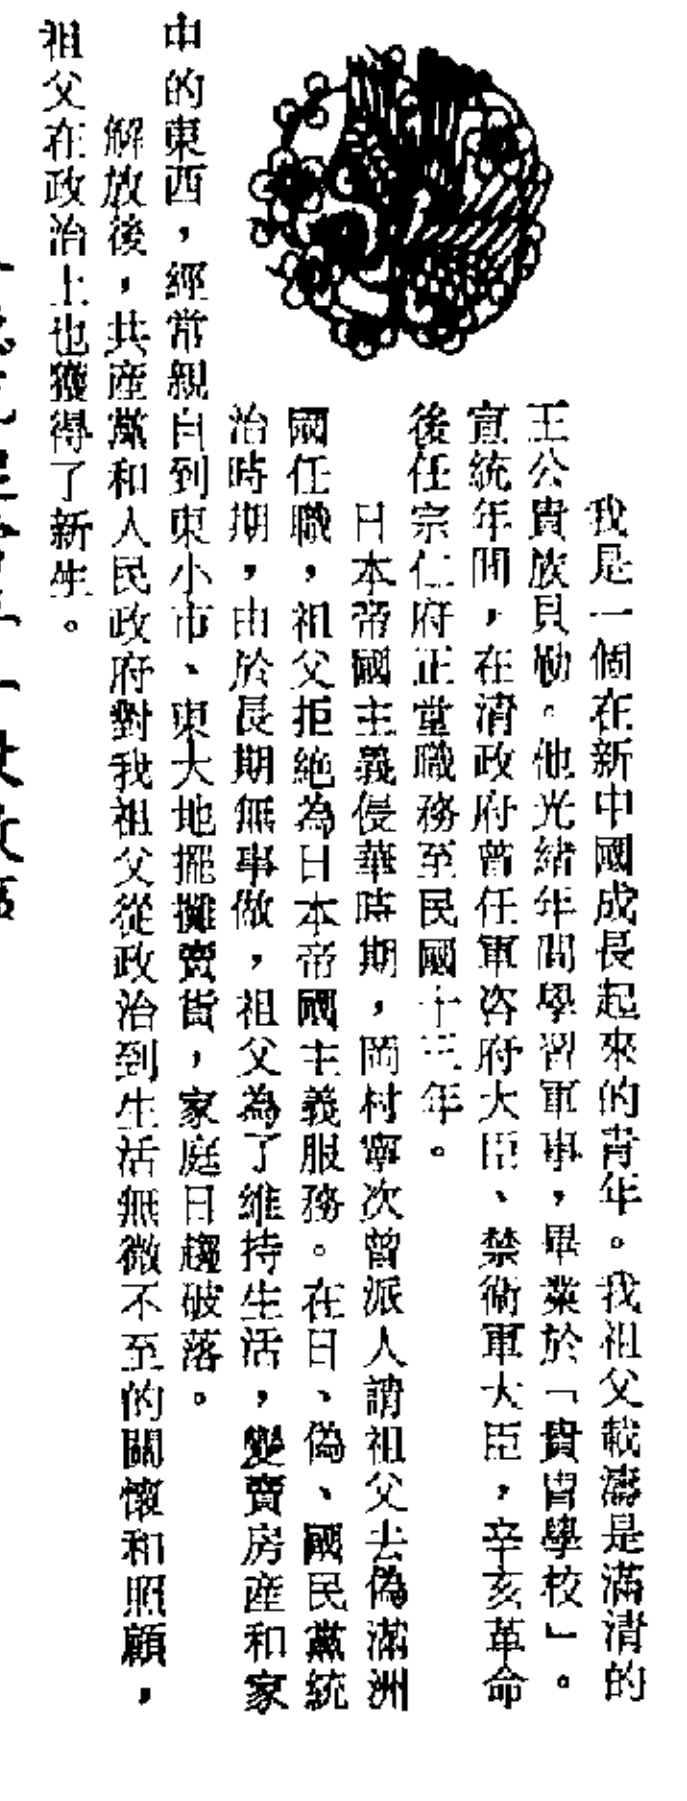 我是一個在新中國成長起來的青年。我祖父載濤是滿清的
王公貴族貝勒。他光緒年間學習軍事，畢業於「貴胄學校」。
宣統年間，在清政府曾任軍咨府大臣、禁衛軍大臣，辛亥革命
後任宗仁府正堂職務至民國十三年。
日本帝國主義侵華時期，岡村寧次曾派人請祖父去偽滿洲
國任職，祖父拒絶為日本帝國主義服務。在日、偽、國民黨統
治時期，由於長期無事做，祖父為了維持生活，變賣房産和家
中的東西，經常親自到東小市、東大地擺攤賣貨，家庭日趨破落。
解放後，共産黨和人民政府對我祖父從政治到生活無微不至的關懷和照顧，
祖父在政治上也獲得了新生。